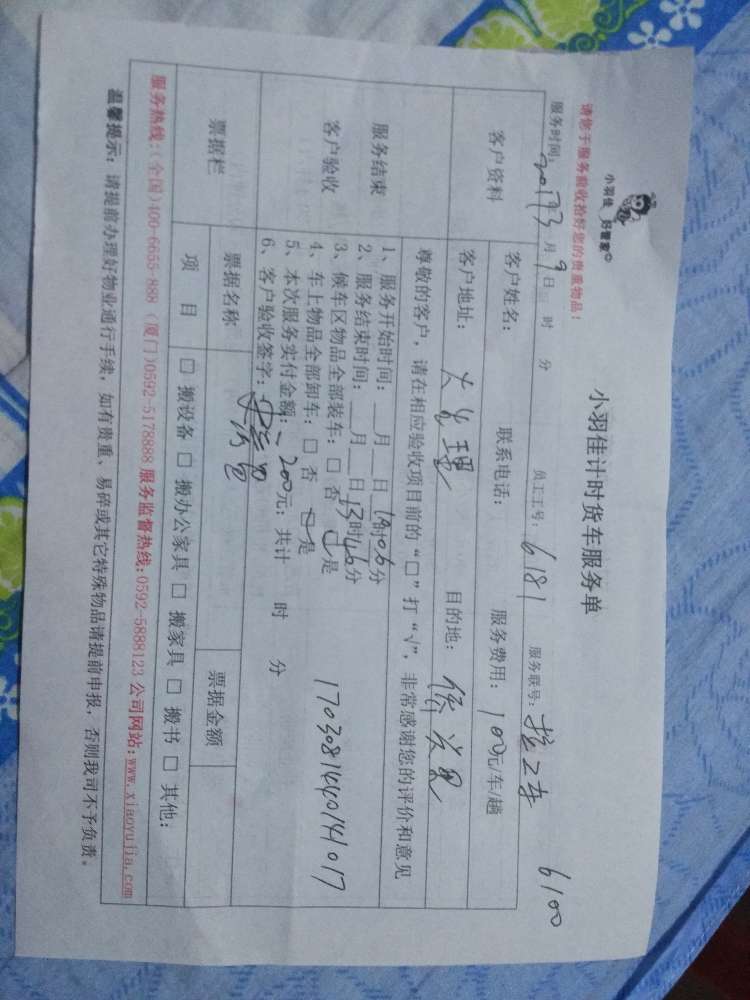 小羽佳 好管家
小羽佳计时货车服务单
6100
请您于服务前收拾好您的贵重物品！
服务时间：2017 3月9日 时 分 员工工号：6181 服务联号：
客户资料
客户姓名： 联系电话： 服务费用：100元/车/趟
客户地址： 目的地：
尊敬的客户，请在相应验收项目前的“□”打“√”，非常感谢您的评价和意见
服务结束
客户验收
1、服务开始时间：__月__日 时06分
2、服务结束时间：__月__日13时46分
3、候车区物品全部装车：□ 否 □是
4、车上物品全部卸车：□ 否 □是
5、本次服务实付金额：200元；共计 时 分
6、客户验收签字：
1703081440141017
票据栏
票据名称 票据金额
项 目 □ 搬设备 □ 搬办公家具 □ 搬家具 □ 搬书 □ 其他：
服务热线：(全国)400-6655-888 (厦门)0592-5178888 服务监督热线：0592-5888123 公司网站：www.xiaoyujia.com
温馨提示：请提前办理好物业通行手续，如有贵重、易碎或其它特殊物品请提前申报，否则我司不予负责。